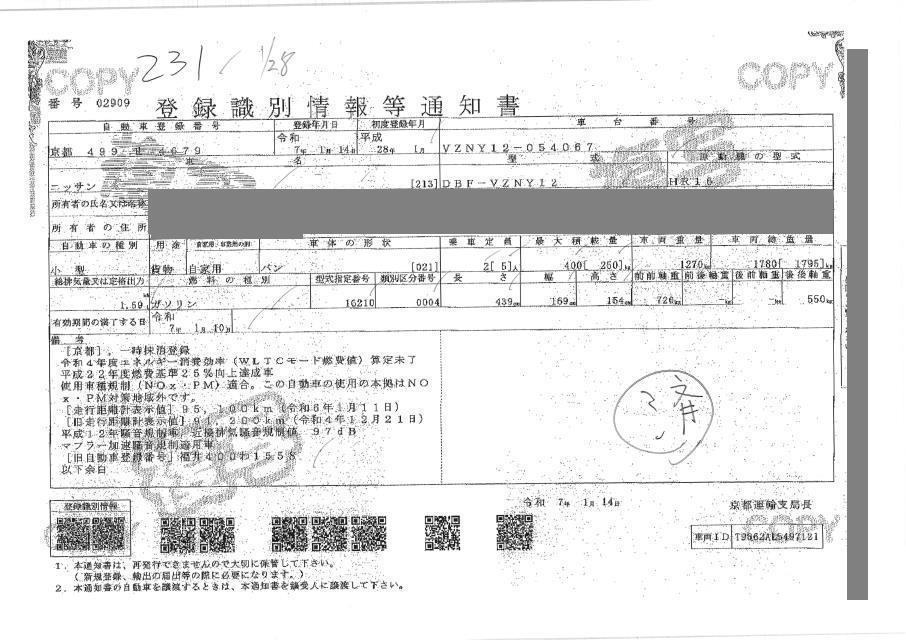 231 / 1/28
COPY COPY
番号 02909 登録識別情報等通知書
自動車登録番号 登録年月日 初度登録年月 車台番号
京都 499 4679 令和 7年 1月 14日 平成 28年 1月 VZNY12-054067
車名 型式 原動機の型式
ニッサン [213] DBF-VZNY12 HR16
所有者の氏名又は名称
所有者の住所
自動車の種別 用途 自家用・事業用の別 車体の形状 乗車定員 最大積載量 車両重量 車両総重量
小型 貨物 自家用 バン [021] 2[ 5]人 400[ 250]kg 1270kg 1780[ 1795]kg
総排気量又は定格出力 燃料の種別 型式指定番号 類別区分番号 長さ 幅 高さ 前前軸重 前後軸重 後前軸重 後後軸重
1.59 ガソリン 16210 0004 439cm 169cm 154cm 720kg -kg -kg 550kg
有効期間の満了する日 令和 7年 1月 10日
備考
[京都],一時抹消登録
令和4年度エネルギー消費効率(WLTCモード燃費値)算定未了
平成22年度燃費基準25%向上達成車
使用車種規制(NOx・PM)適合。この自動車の使用の本拠はNO
x・PM対策地域外です。
[走行距離計表示値]95,100km(令和6年1月11日)
[旧走行距離計表示値]91,200km(令和4年12月21日)
平成12年騒音規制車、近接排気騒音規制値 97dB
マフラー加速騒音規制適用車
[旧自動車登録番号]福井400わ1558
以下余白
登録識別情報
令和 7年 1月 14日 京都運輸支局長
COPY COPY
車両ID T9862AL5497121
1.本通知書は、再発行できませんので大切に保管して下さい。
(新規登録、輸出の届出等の際に必要になります。)
2.本通知書の自動車を譲渡するときは、本通知書を譲受人に譲渡して下さい。